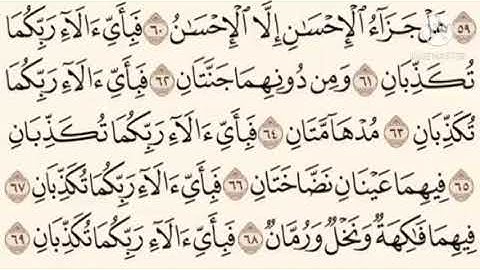 ٥٩ هَلْ جَزَآءُ ٱلْإِحْسَٰنِ إِلَّا ٱلْإِحْسَٰنُ ٦٠ فَبِأَيِّ ءَالَآءِ رَبِّكُمَا
تُكَذِّبَانِ ٦١ وَمِن دُونِهِمَا جَنَّتَانِ ٦٢ فَبِأَيِّ ءَالَآءِ رَبِّكُمَا
تُكَذِّبَانِ ٦٣ مُدْهَآمَّتَانِ ٦٤ فَبِأَيِّ ءَالَآءِ رَبِّكُمَا تُكَذِّبَانِ
٦٥ فِيهِمَا عَيْنَانِ نَضَّاخَتَانِ ٦٦ فَبِأَيِّ ءَالَآءِ رَبِّكُمَا تُكَذِّبَانِ ٦٧
فِيهِمَا فَٰكِهَةٌ وَنَخْلٌ وَرُمَّانٌ ٦٨ فَبِأَيِّ ءَالَآءِ رَبِّكُمَا تُكَذِّبَانِ ٦٩